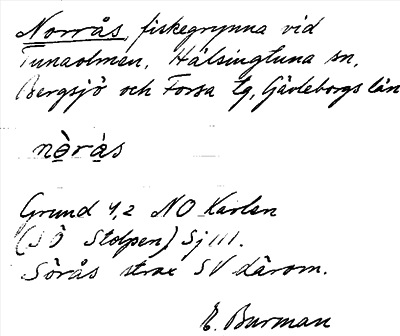 Norrås, fiskegrynna vid
Tunaolmen, Hälsingtuna sn,
Bergsjö och Forsa tg, Gävleborgs län
nò̱rà̱s
Grund 4,2 NO Karlen
(SÖ Stolpen) Sj 111.
Sörås strax SV därom.
E. Burman